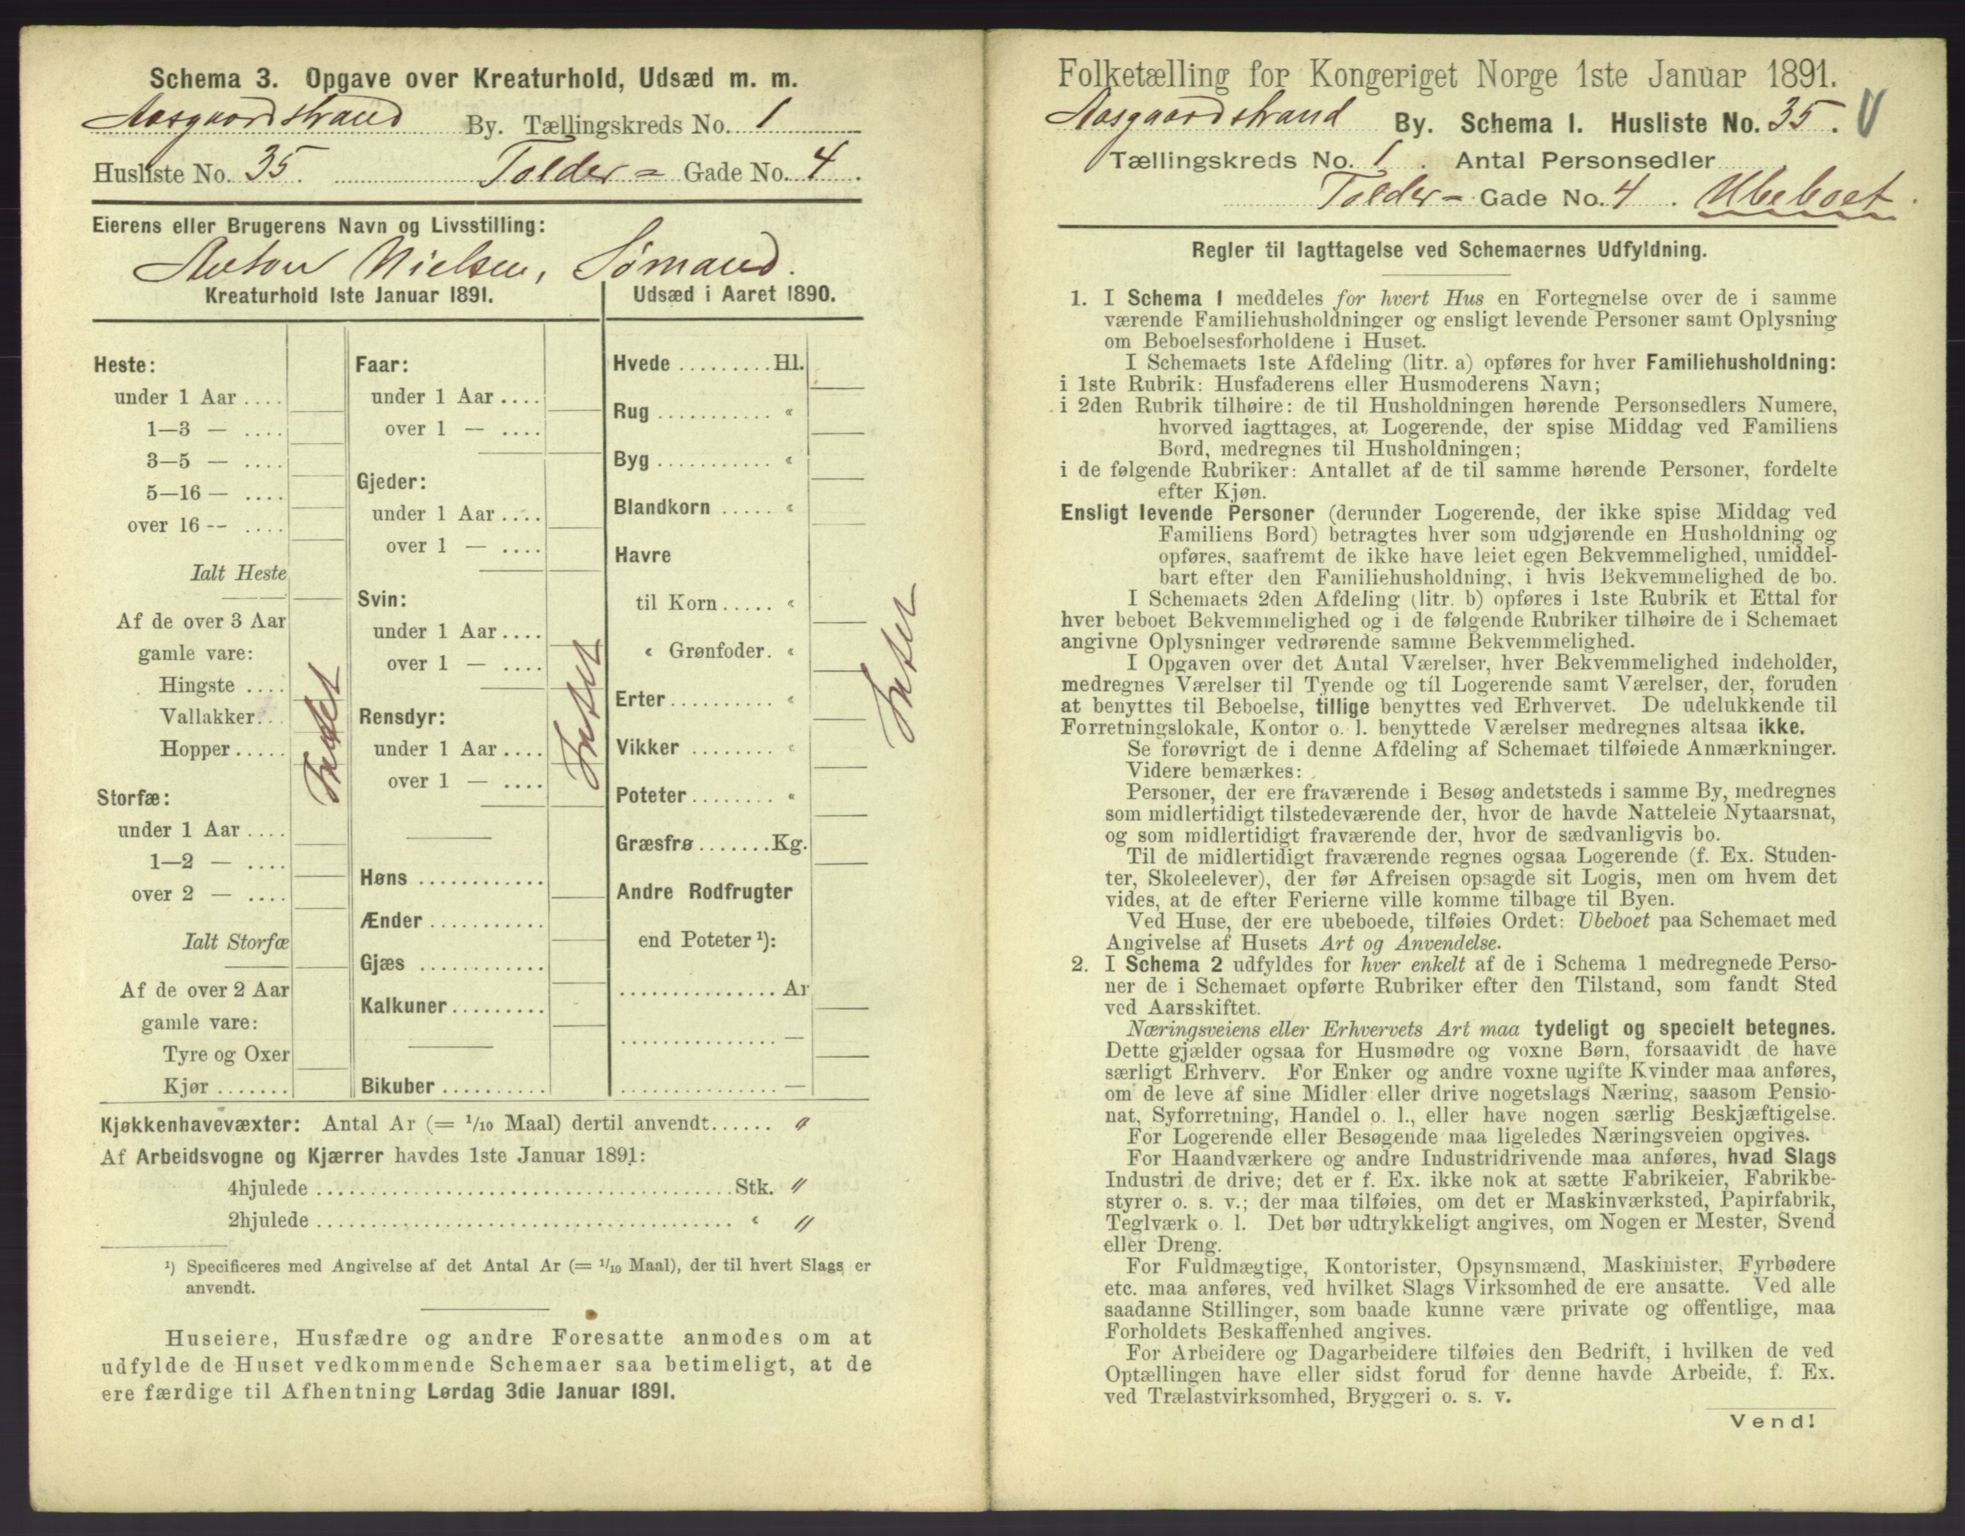 Schema 3. Opgave over Kreaturhold, Udsæd m. m.
Aasgaardstrand By. Tællingskreds No. 1
Husliste No. 35. Tolder- Gade No. 4.
Eierens eller Brugerens Navn og Livsstilling:
Anton Nielsen, Sømand.
Kreaturhold 1ste Januar 1891.
Heste:
under 1 Aar ....
1—3 — ....
3—5 — ....
5—16 — ....
over 16 -- ....
Ialt Heste
Af de over 3 Aar
gamle vare:
Hingste ....
Vallakker...
Hopper.....
Storfæ:
under 1 Aar ....
1—2 — ....
over 2 — ....
Ialt Storfæ
Af de over 2 Aar
gamle vare:
Tyre og Oxer
Kjør .......
Intet
Faar:
under 1 Aar ....
over 1 — ....
Gjeder:
under 1 Aar ....
over 1 — ....
Svin:
under 1 Aar ....
over 1 — ....
Rensdyr:
under 1 Aar ....
over 1 — ....
Høns ............
Ænder ...........
Gjæs ............
Kalkuner.........
Bikuber ..........
Intet
Udsæd i Aaret 1890.
Hvede .........Hl.
Rug ........... "
Byg ........... "
Blandkorn ..... "
Havre
til Korn ..... "
" Grønfoder. "
Erter.......... "
Vikker ........ "
Poteter........ "
Græsfrø .......Kg.
Andre Rodfrugter
end Poteter ¹):
............... Ar
............... —
............... —
Intet
Kjøkkenhavevæxter: Antal Ar (= 1/10 Maal) dertil anvendt...... "
Af Arbeidsvogne og Kjærrer havdes 1ste Januar 1891:
4hjulede ........................................Stk. "
2hjulede ........................................ " "
¹) Specificeres med Angivelse af det Antal Ar (= 1/10 Maal), der til hvert Slags er
anvendt.
Huseiere, Husfædre og andre Foresatte anmodes om at
udfylde de Huset vedkommende Schemaer saa betimeligt, at de
ere færdige til Afhentning Lørdag 3die Januar 1891.
Folketælling for Kongeriget Norge 1ste Januar 1891.
Aasgaardstrand By. Schema 1. Husliste No. 35.
Tællingskreds No. 1. Antal Personsedler
Tolder- Gade No. 4. Ubeboet.
Regler til Iagttagelse ved Schemaernes Udfyldning.
1. I Schema 1 meddeles for hvert Hus en Fortegnelse over de i samme
værende Familiehusholdninger og ensligt levende Personer samt Oplysning
om Beboelsesforholdene i Huset.
I Schemaets 1ste Afdeling (litr. a) opføres for hver Familiehusholdning:
i 1ste Rubrik: Husfaderens eller Husmoderens Navn;
i 2den Rubrik tilhøire: de til Husholdningen hørende Personsedlers Numere,
hvorved iagttages, at Logerende, der spise Middag ved Familiens
Bord, medregnes til Husholdningen;
i de følgende Rubriker: Antallet af de til samme hørende Personer, fordelte
efter Kjøn.
Ensligt levende Personer (derunder Logerende, der ikke spise Middag ved
Familiens Bord) betragtes hver som udgjørende en Husholdning og
opføres, saafremt de ikke have leiet egen Bekvemmelighed, umiddel-
bart efter den Familiehusholdning, i hvis Bekvemmelighed de bo.
I Schemaets 2den Afdeling (litr. b) opføres i 1ste Rubrik et Ettal for
hver beboet Bekvemmelighed og i de følgende Rubriker tilhøire de i Schemaet
angivne Oplysninger vedrørende samme Bekvemmelighed.
I Opgaven over det Antal Værelser, hver Bekvemmelighed indeholder,
medregnes Værelser til Tyende og til Logerende samt Værelser, der, foruden
at benyttes til Beboelse, tillige benyttes ved Erhvervet. De udelukkende til
Forretningslokale, Kontor o. l. benyttede Værelser medregnes altsaa ikke.
Se forøvrigt de i denne Afdeling af Schemaet tilføiede Anmærkninger.
Videre bemærkes:
Personer, der ere fraværende i Besøg andetsteds i samme By, medregnes
som midlertidigt tilstedeværende der, hvor de havde Natteleie Nytaarsnat,
og som midlertidigt fraværende der, hvor de sædvanligvis bo.
Til de midlertidigt fraværende regnes ogsaa Logerende (f. Ex. Studen-
ter, Skoleelever), der før Afreisen opsagde sit Logis, men om hvem det
vides, at de efter Ferierne ville komme tilbage til Byen.
Ved Huse, der ere ubeboede, tilføies Ordet: Ubeboet paa Schemaet med
Angivelse af Husets Art og Anvendelse.
2. I Schema 2 udfyldes for hver enkelt af de i Schema 1 medregnede Perso-
ner de i Schemaet opførte Rubriker efter den Tilstand, som fandt Sted
ved Aarsskiftet.
Næringsveiens eller Erhvervets Art maa tydeligt og specielt betegnes.
Dette gjælder ogsaa for Husmødre og voxne Børn, forsaavidt de have
særligt Erhverv. For Enker og andre voxne ugifte Kvinder maa anføres,
om de leve af sine Midler eller drive nogetslags Næring, saasom Pensio-
nat, Syforretning, Handel o. l., eller have nogen særlig Beskjæftigelse.
For Logerende eller Besøgende maa ligeledes Næringsveien opgives.
For Haandværkere og andre Industridrivende maa anføres, hvad Slags
Industri de drive; det er f. Ex. ikke nok at sætte Fabrikeier, Fabrikbe-
styrer o. s. v.; der maa tilføies, om det er Maskinværksted, Papirfabrik,
Teglværk o. l. Det bør udtrykkeligt angives, om Nogen er Mester, Svend
eller Dreng.
For Fuldmægtige, Kontorister, Opsynsmænd, Maskinister, Fyrbødere
etc. maa anføres, ved hvilket Slags Virksomhed de ere ansatte. Ved alle
saadanne Stillinger, som baade kunne være private og offentlige, maa
Forholdets Beskaffenhed angives.
For Arbeidere og Dagarbeidere tilføies den Bedrift, i hvilken de ved
Optællingen have eller sidst forud for denne havde Arbeide, f. Ex.
ved Trælastvirksomhed, Bryggeri o. s. v.
Vend!